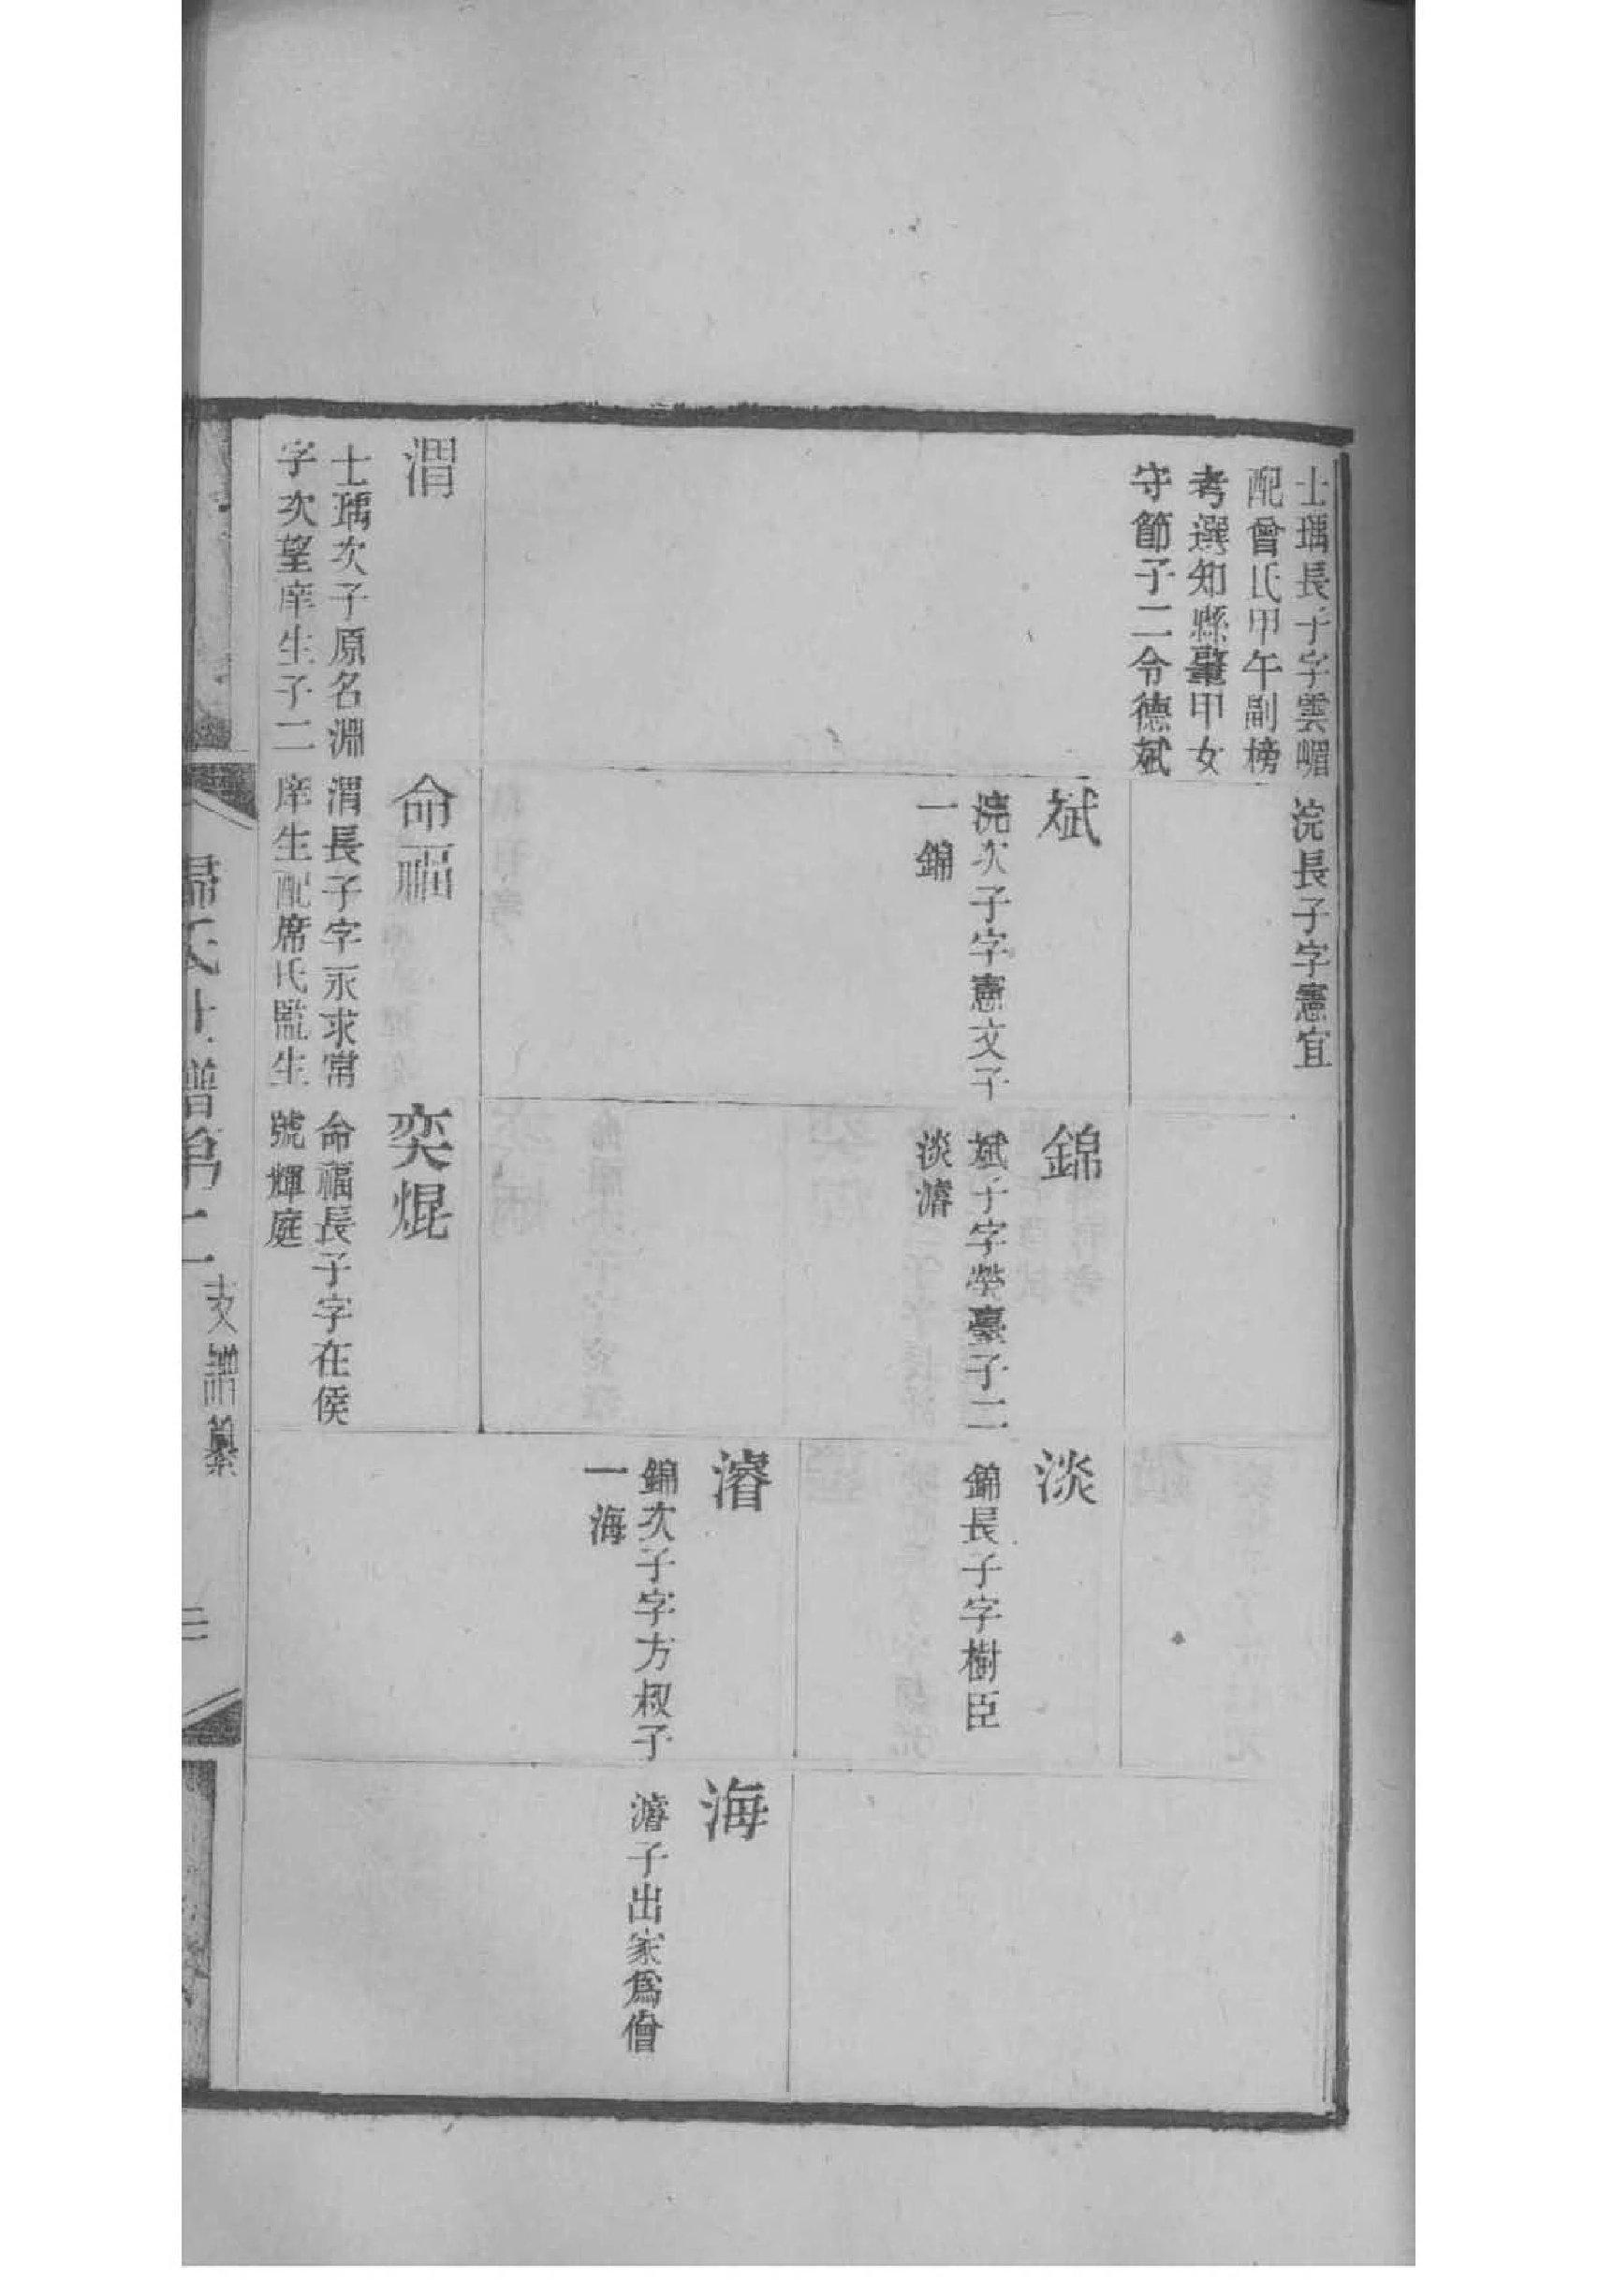 士瑀長子字雲嵋
配曾氏甲午副榜
考選知縣肇甲女
守節子二令德斌
浣長子字憲宜
斌
浣次子字憲文子
一錦
錦
斌子字榮臺子二
淡濬
淡
錦長子字樹臣
濬
錦次子字方叔子
一海
海
濬子出家為僧
渭
士瑀次子原名淵
字次望庠生子二
命福
渭長子字永求常
庠生配席氏監生
奕焜
命福長子字在侯
號輝庭
歸氏世譜第二
支譜纂
二